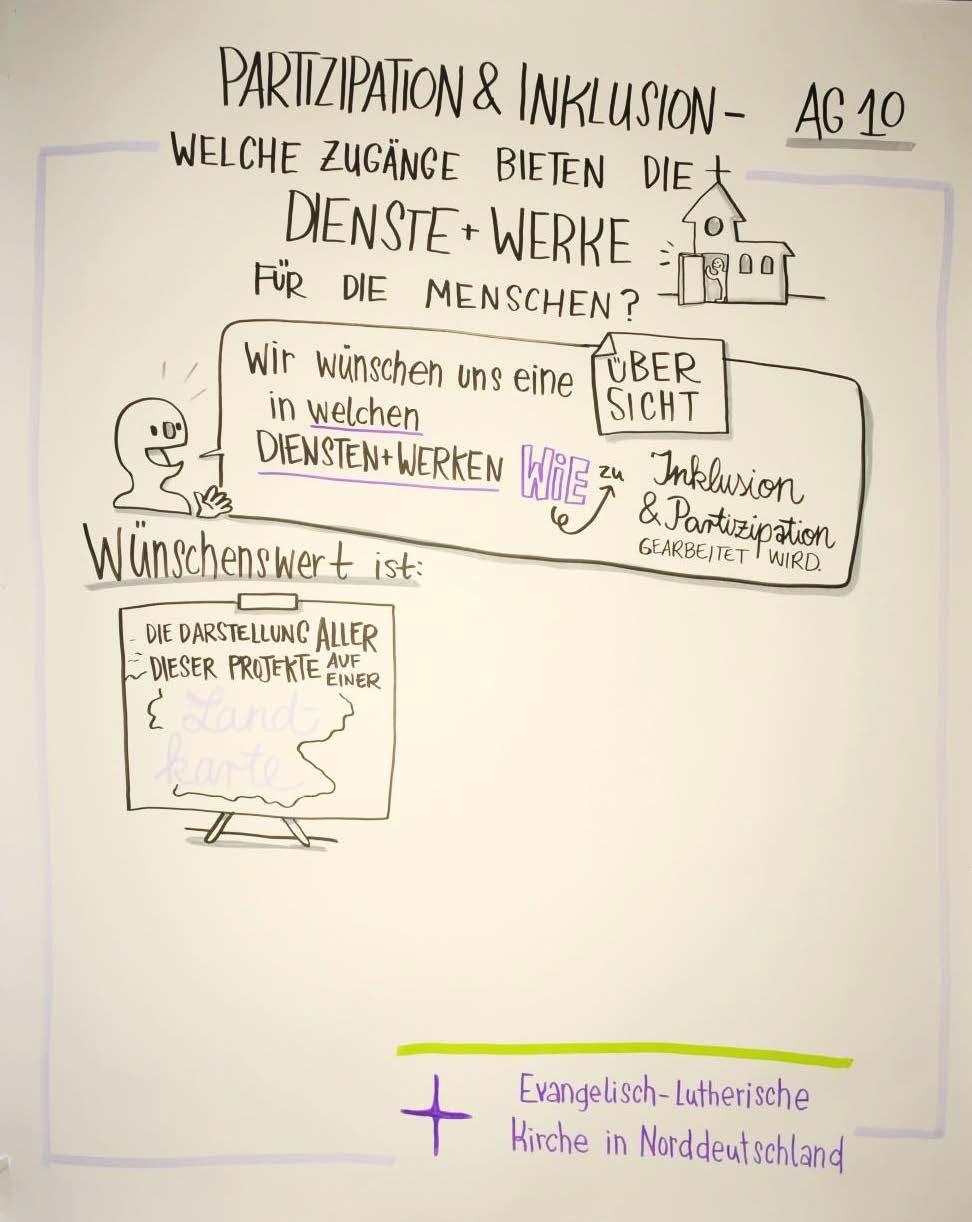 PARTIZIPATION & INKLUSION – AG 10
WELCHE ZUGÄNGE BIETEN DIE
DIENSTE + WERKE
FÜR DIE MENSCHEN?
Wir wünschen uns eine ÜBER
SICHT
in welchen
DIENSTEN + WERKEN WiE zu Inklusion
& Partizipation
GEARBEITET WIRD.
Wünschenswert ist:
DIE DARSTELLUNG ALLER
DIESER PROJEKTE AUF
EINER
Land-
karte
Evangelisch-Lutherische
Kirche in Norddeutschland